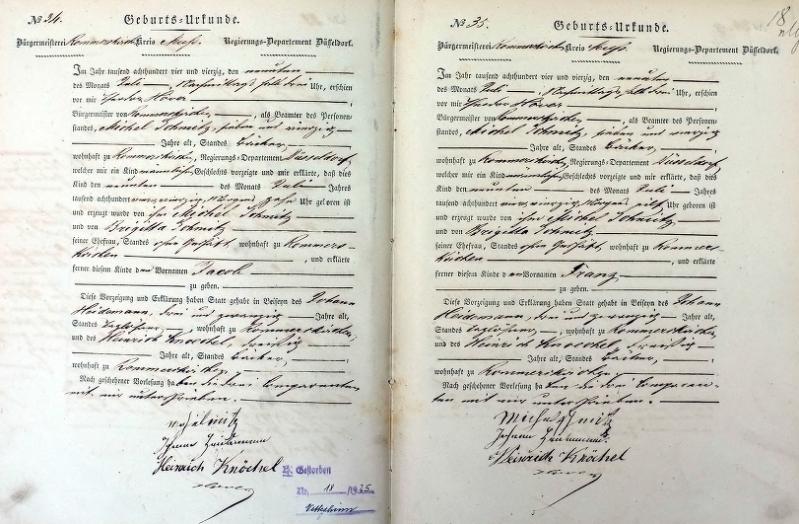 № 34.
Geburts-Urkunde.
Bürgermeisterei Rommerskirchen Kreis Neuß. Regierungs-Departement Düsseldorf.
Im Jahr tausend achthundert vier und vierzig, den neunten
des Monats Juli Nachmittags halb drei Uhr, erschien
vor mir Theodor Höver
Bürgermeister von Rommerskirchen, als Beamter des Personen-
standes, Michel Schmitz, sieben und vierzig
Jahre alt, Standes Bäcker,
wohnhaft zu Rommerskirchen, Regierungs-Departement Düsseldorf,
welcher mir ein Kind männlichen Geschlechts vorzeigte und mir erklärte, daß dies
Kind den neunten des Monats Juli Jahres
tausend achthundert vier und vierzig, Morgens zehn Uhr geboren ist
und erzeugt wurde von ihm Michel Schmitz
und von Brigitta Schmitz
seiner Ehefrau, Standes ohne Geschäft, wohnhaft zu Rommers-
kirchen, und erklärte
ferner diesem Kinde den Vornamen Jacob
zu geben.
Diese Vorzeigung und Erklärung haben Statt gehabt in Beiseyn des Johann
Heidemann, drei und zwanzig Jahre alt,
Standes Taglöhner, wohnhaft zu Rommerskirchen,
und des Heinrich Knoechel, dreißig
Jahre alt, Standes Bäcker,
wohnhaft zu Rommerskirchen.
Nach geschehener Vorlesung haben die drei Comparenten
mit mir unterschrieben.
Heinrich Knöchel
Gestorben
Nr. 18
№ 35.
Geburts-Urkunde.
18
Bürgermeisterei Rommerskirchen Kreis Neuß. Regierungs-Departement Düsseldorf.
Im Jahr tausend achthundert vier und vierzig, den neunten
des Monats Juli, Nachmittags halb drei Uhr, erschien
vor mir Theodor Höver
Bürgermeister von Rommerskirchen, als Beamter des Personen-
standes, Michel Schmitz, sieben und vierzig
Jahre alt, Standes Bäcker,
wohnhaft zu Rommerskirchen, Regierungs-Departement Düsseldorf,
welcher mir ein Kind männlichen Geschlechts vorzeigte und mir erklärte, daß dies
Kind den neunten des Monats Juli Jahres
tausend achthundert vier und vierzig, Morgens elf Uhr geboren ist
und erzeugt wurde von ihm Michel Schmitz
und von Brigitta Schmitz
seiner Ehefrau, Standes ohne Geschäft, wohnhaft zu Rommers-
kirchen, und erklärte
ferner diesem Kinde den Vornamen Franz
zu geben.
Diese Vorzeigung und Erklärung haben Statt gehabt in Beiseyn des Johann
Heidemann, drei und zwanzig Jahre alt,
Standes Taglöhner, wohnhaft zu Rommerskirchen,
und des Heinrich Knoechel, dreißig
Jahre alt, Standes Bäcker,
wohnhaft zu Rommerskirchen.
Nach geschehener Vorlesung haben die drei Comparen-
ten mit mir unterschrieben.
Michel Schmitz
Johann Heidemann
Heinrich Knöchel